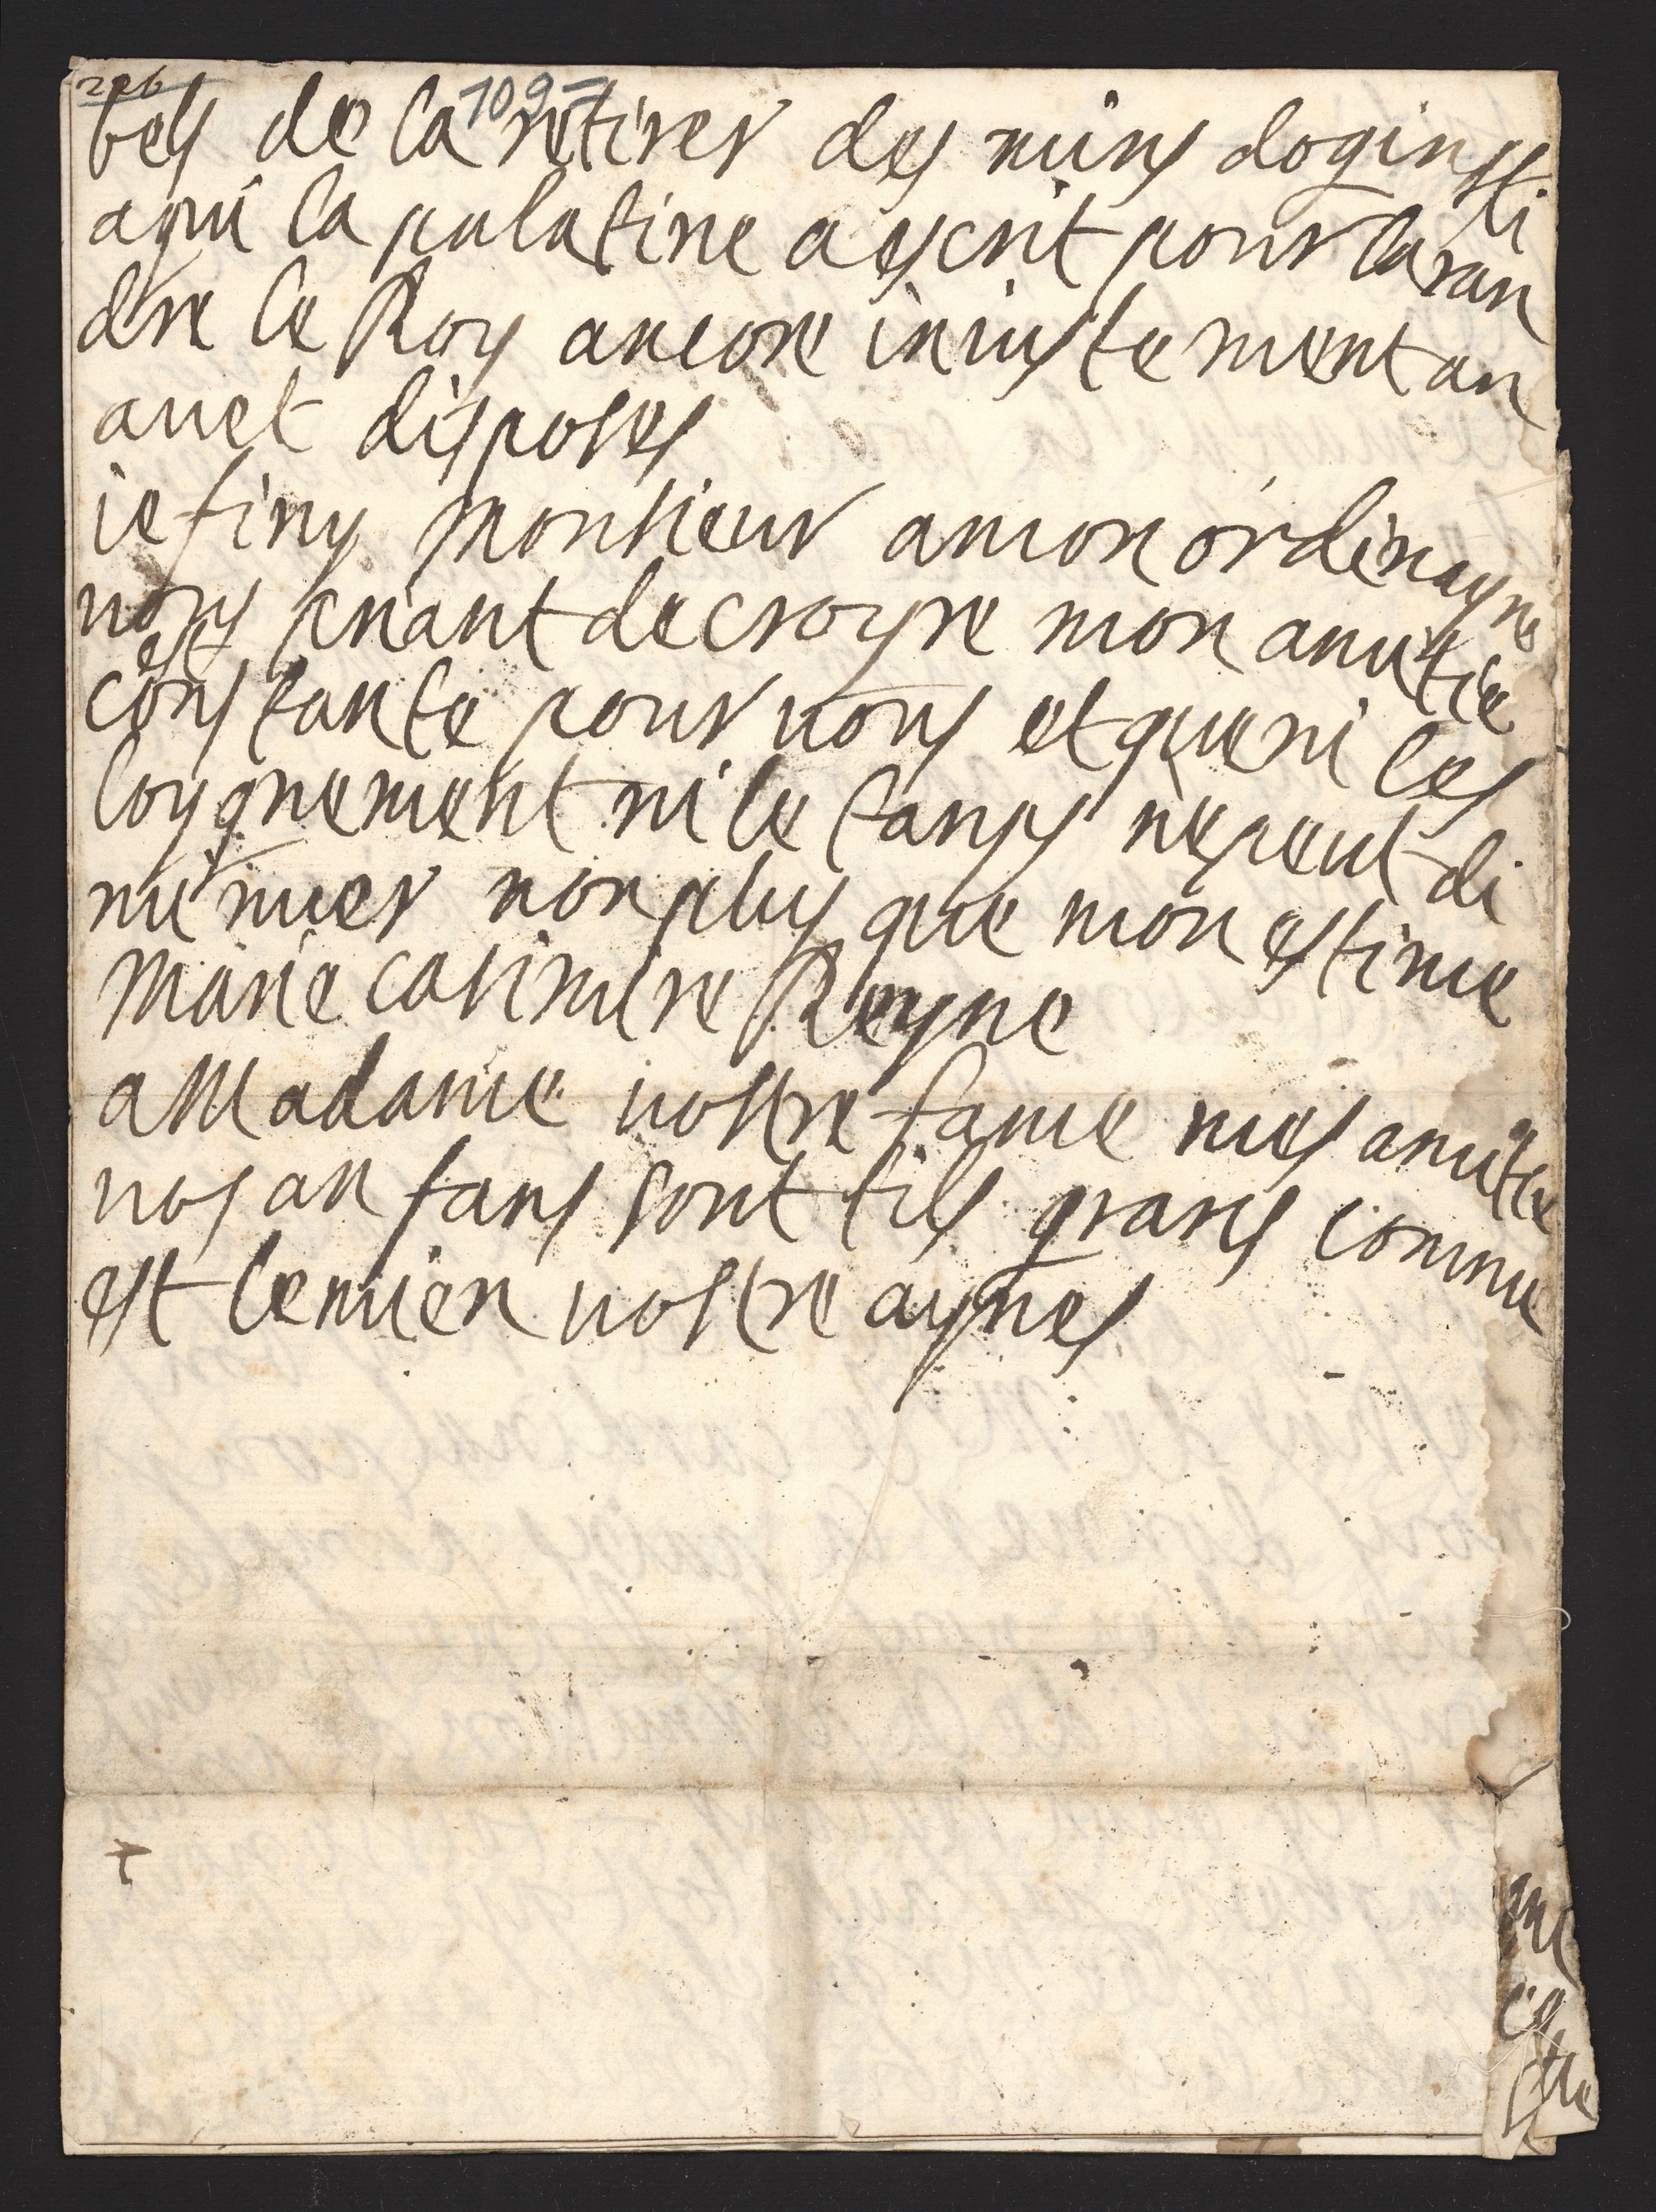 226 109
bes de la retirer des mins doginsti
aqui la palatine a escrit pour la ran
dre le Roy ancore iniustement an
auet disposes
ie finy Monsieur amon ordinayre
vous priant de croyre mon amitie
est
constante pour vous et que ni les
loygnement ni le tamps ne peut di
minuer non plus que mon estime
Marie Casimire Reyne
a Madame vostre fame mes amitie
vos an fans sont tils grans comme
est le mien vostre aynes
me
ce